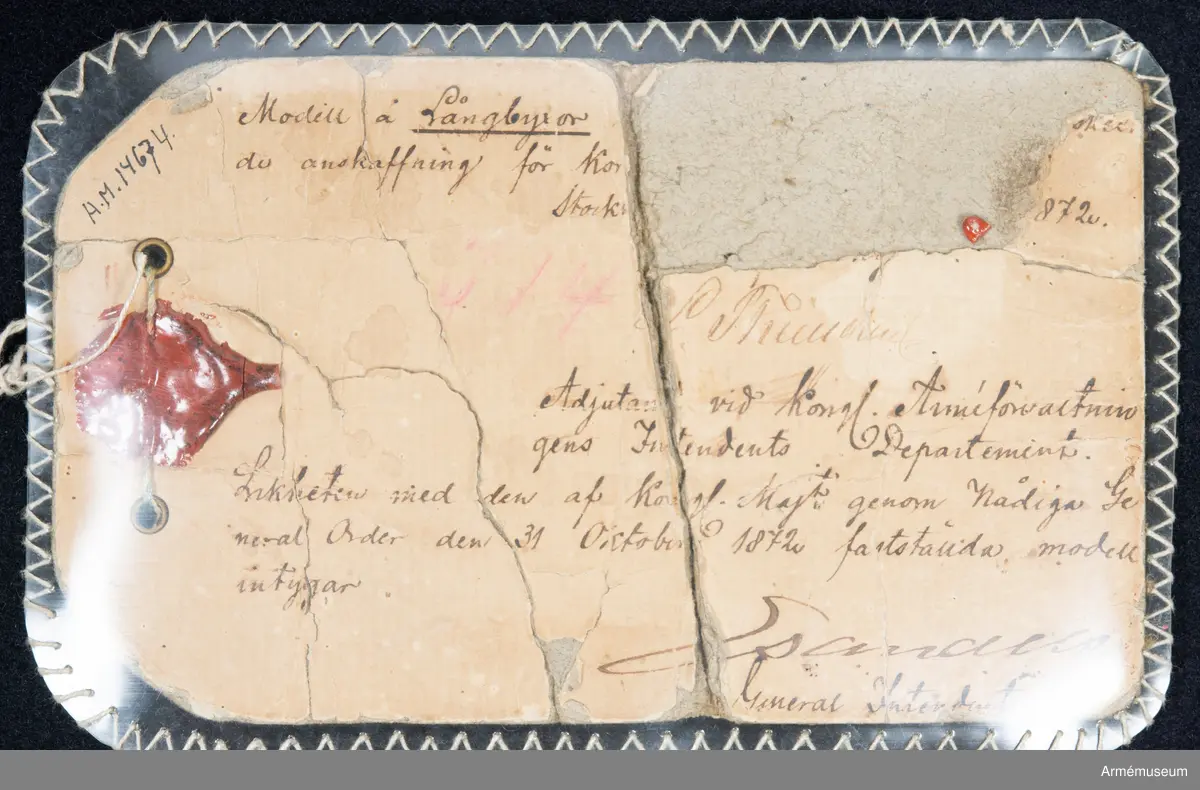 Modell á Långbyxor
de anskaffning för Kor
Stock
872.
A.M. 14674.
Adjutan vid Kongl. Arméförvaltnin
gens Intendents Departement.
Likheten med den af Kongl. Majt genom Nådiga Ge
neral Order den 31 October 1872 fastställda modell
intygar
General Intendent
Armémuseum